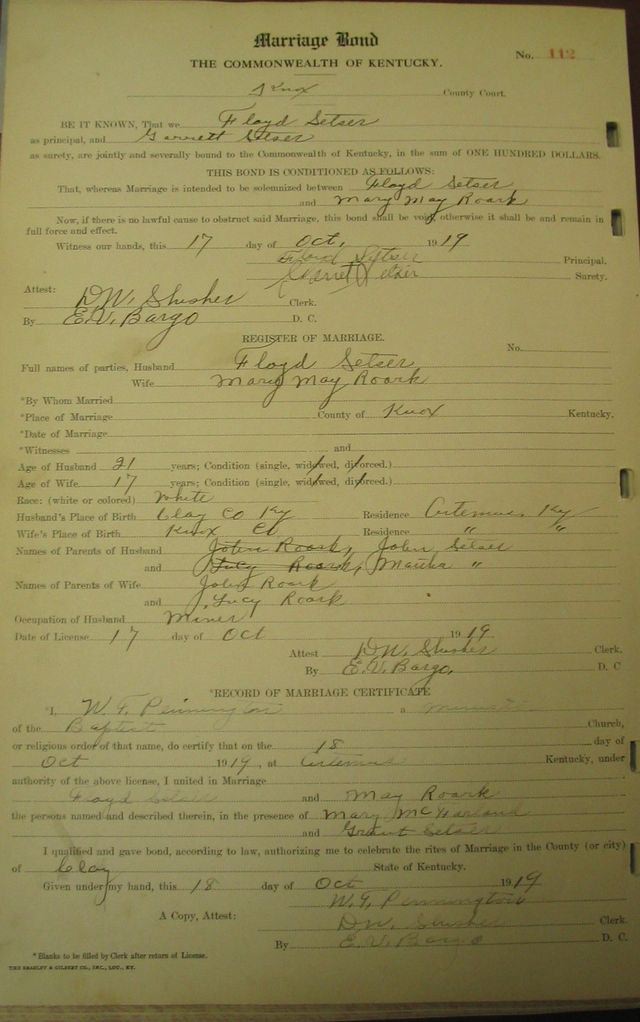 Marriage Bond
No. 112
THE COMMONWEALTH OF KENTUCKY.
Knox County Court.
BE IT KNOWN, That we Floyd Setser
as principal, and Garrett Setser
as surety, are jointly and severally bound to the Commonwealth of Kentucky, in the sum of ONE HUNDRED DOLLARS.
THIS BOND IS CONDITIONED AS FOLLOWS:
That, whereas Marriage is intended to be solemnized between Floyd Setser
and Mary May Roark
Now, if there is no lawful cause to obstruct said Marriage, this bond shall be void, otherwise it shall be and remain in
full force and effect.
Witness our hands, this 17 day of Oct, 1919
Floyd Setser Principal.
Surety.
Attest:
D.W. Slusher Clerk.
By E.V. Bargo D. C.
REGISTER OF MARRIAGE.
No.
Full names of parties, Husband Floyd Setser
Wife Mary May Roark
*By Whom Married
*Place of Marriage County of Knox Kentucky.
*Date of Marriage
*Witnesses and
Age of Husband 21 years; Condition (single, widowed, divorced.)
Age of Wife 17 years; Condition (single, widowed, divorced.)
Race: (white or colored) White
Husband's Place of Birth Clay Co Ky Residence Artemus, Ky
Wife's Place of Birth Knox Co Residence " "
Names of Parents of Husband John Roark, John Setser
and Lucy Roark, "
Names of Parents of Wife John Roark
and Lucy Roark
Occupation of Husband Miner
Date of License 17 day of Oct 1919
Attest D.W. Slusher Clerk.
By E.V. Bargo, D. C
*RECORD OF MARRIAGE CERTIFICATE
*I, W. F. Pennington a Minister
of the Baptist Church,
or religious order of that name, do certify that on the 18 day of
Oct 1919, at Artemus Kentucky, under
authority of the above license, I united in Marriage
Floyd Setser and May Roark
the persons named and described therein, in the presence of Mary McFarland
and Grant Setser
I qualified and gave bond, according to law, authorizing me to celebrate the rites of Marriage in the County (or city)
of Clay State of Kentucky.
Given under my hand, this 18 day of Oct 1919
W. F. Pennington
A Copy, Attest: D.W. Slusher Clerk.
By E.V. Bargo D. C.
* Blanks to be filled by Clerk after return of License.
THE BRADLEY & GILBERT CO., INC., LOU., KY.